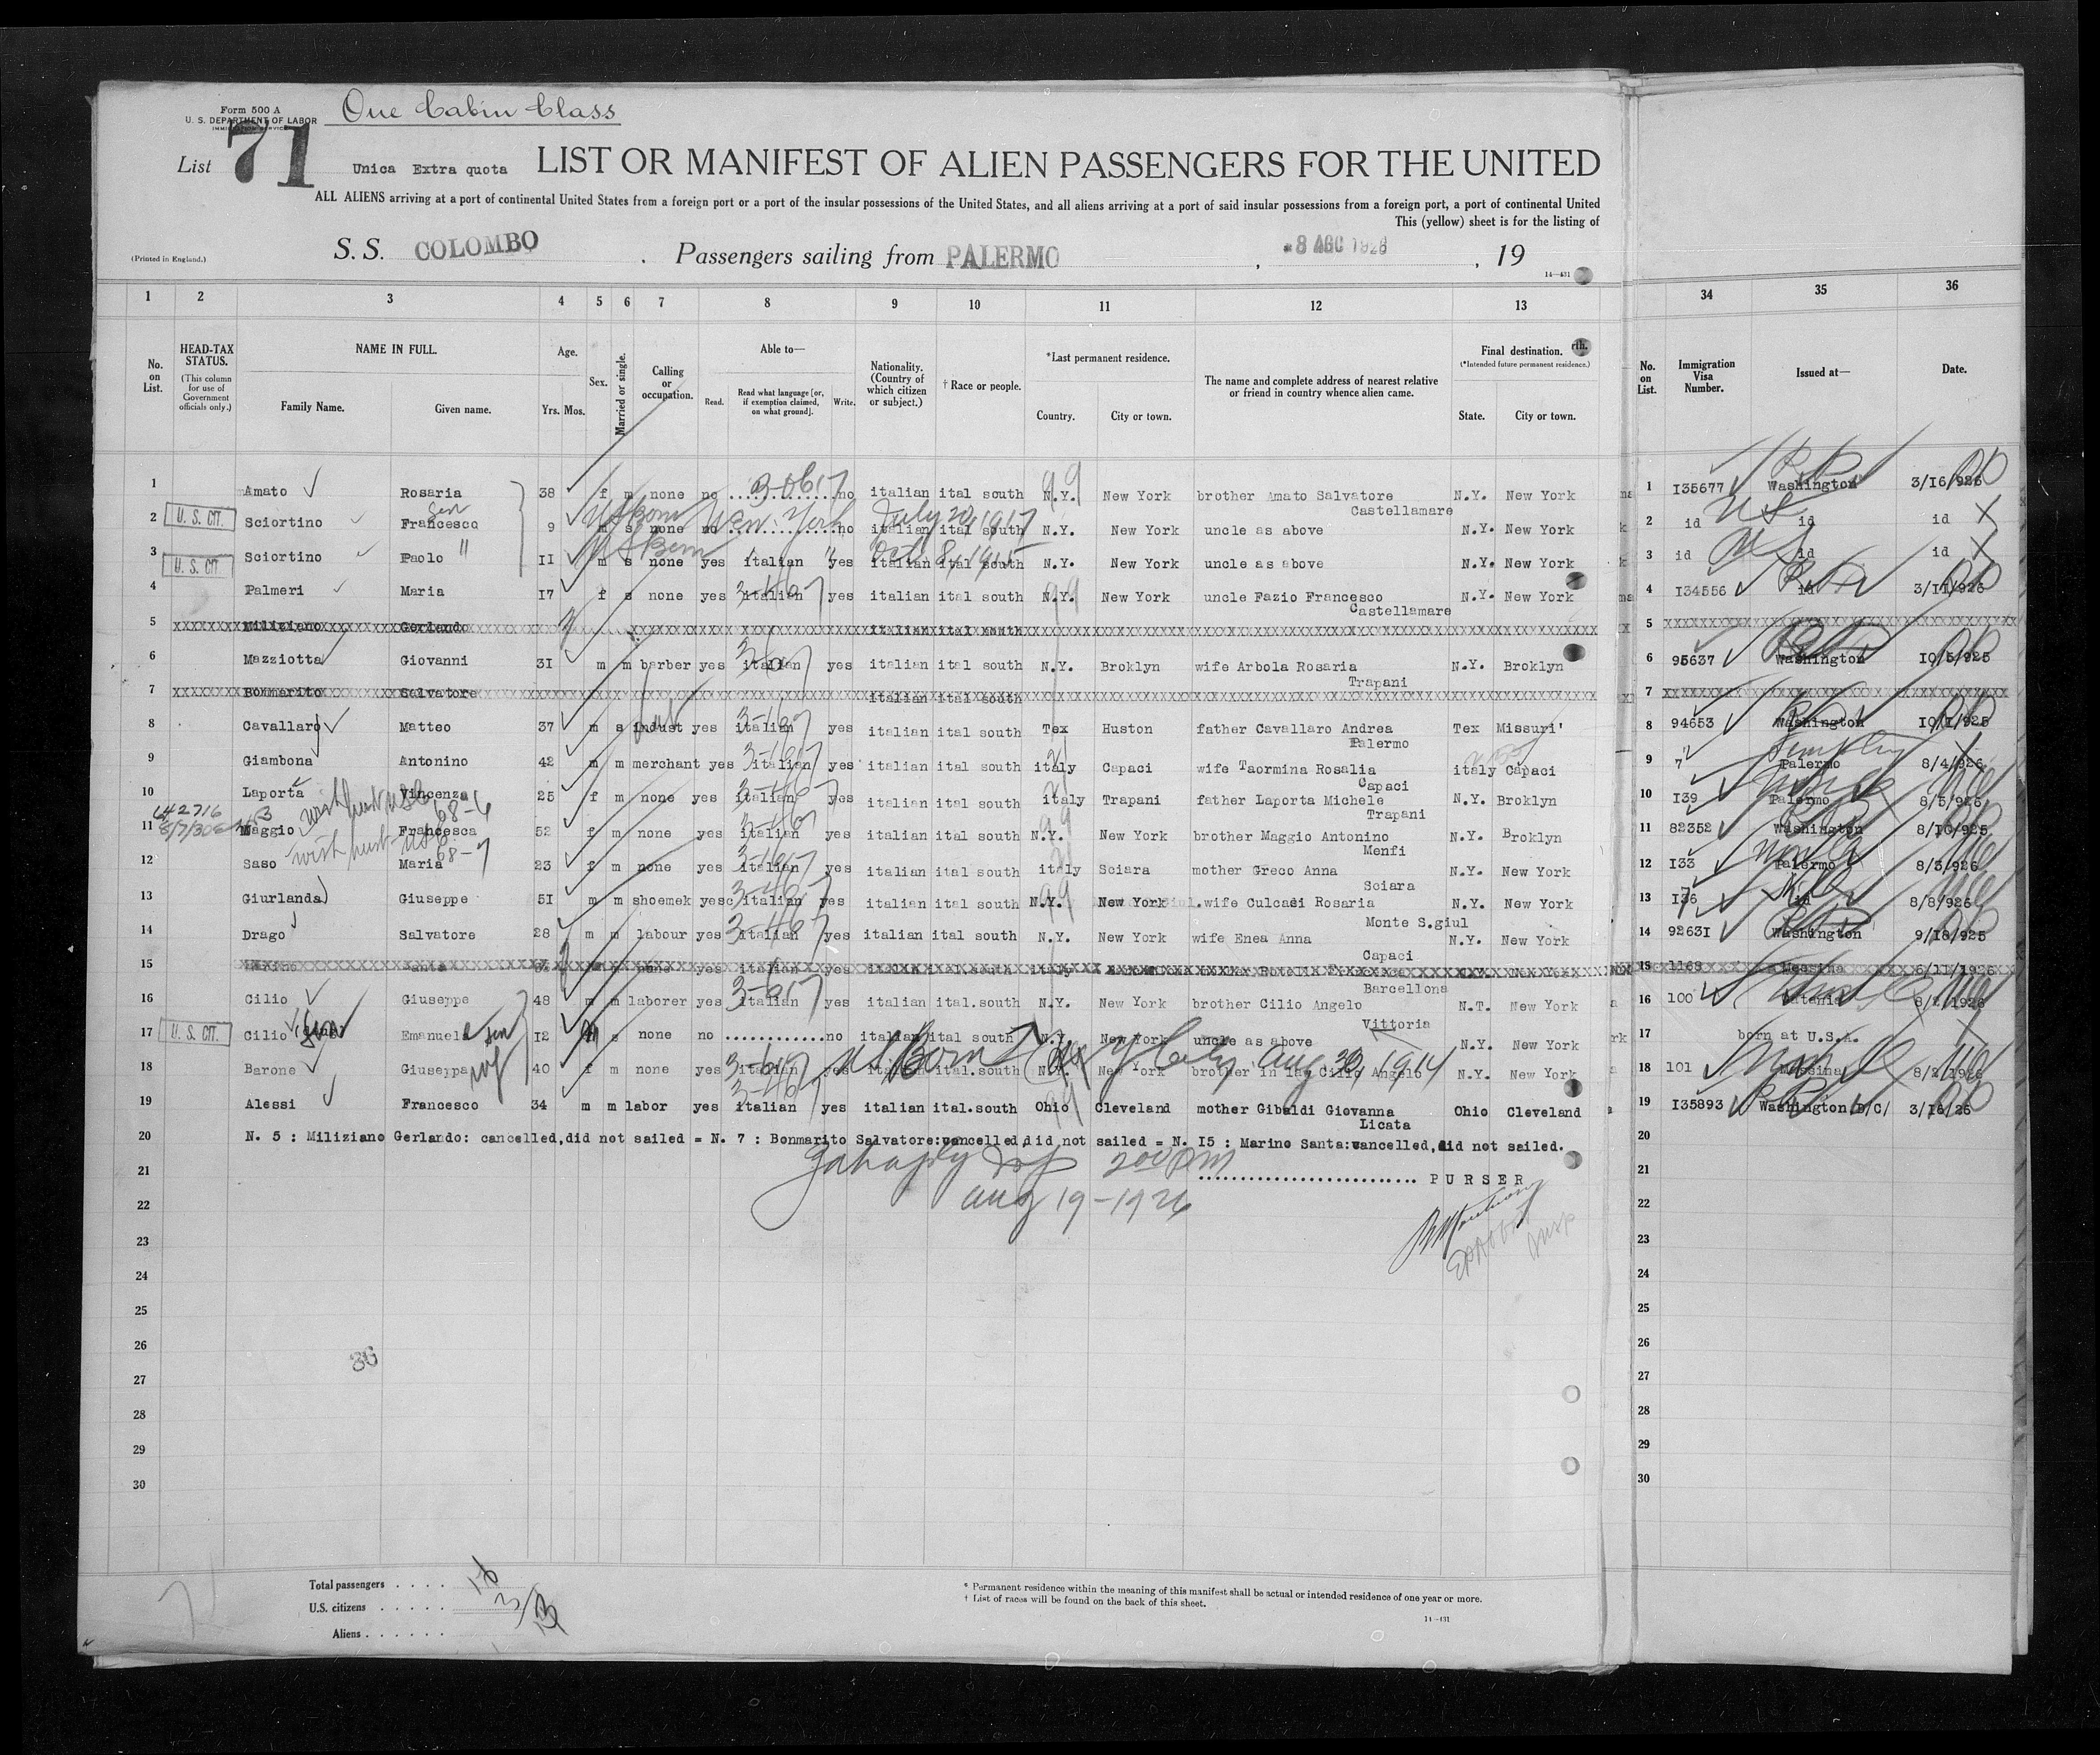 Form 500 A
U. S. DEPARTMENT OF LABOR
IMMIGRATION SERVICE
One Cabin Class
List 71 Unica Extra quota LIST OR MANIFEST OF ALIEN PASSENGERS FOR THE UNITED
ALL ALIENS arriving at a port of continental United States from a foreign port or a port of the insular possessions of the United States, and all aliens arriving at a port of said insular possessions from a foreign port, a port of continental United
This (yellow) sheet is for the listing of
(Printed in England.) S. S. COLOMBO . Passengers sailing from PALERMO , *8 AGO 1926 , 19
14—431
1 2 3 4 5 6 7 8 9 10 11 12 13 34 35 36
No. on List. HEAD-TAX STATUS. (This column for use of Government officials only.) NAME IN FULL. Family Name. Given name. Age. Yrs. Mos. Sex. Married or single. Calling or occupation. Able to— Read. Read what language [or, if exemption claimed, on what ground]. Write. Nationality. (Country of which citizen or subject.) † Race or people. *Last permanent residence. Country. City or town. The name and complete address of nearest relative or friend in country whence alien came. Final destination. (*Intended future permanent residence.) State. City or town. No. on List. Immigration Visa Number. Issued at— Date.
1 Amato Rosaria 38 f m none no ............ no italian ital south N.Y. New York brother Amato Salvatore Castellamare N.Y. New York 1 I35677 Washington 3/I6/926
2 U. S. CIT. Sciortino Francesco 9 m s none no ............ no italian ital south N.Y. New York uncle as above N.Y. New York 2 id id id
US Born New York July 20, 1917
3 U. S. CIT. Sciortino Paolo " II m s none yes italian yes italian ital south N.Y. New York uncle as above N.Y. New York 3 id id id
US Born " Oct 8, 1915
4 Palmeri Maria I7 f s none yes italian yes italian ital south N.Y. New York uncle Fazio Francesco Castellamare N.Y. New York 4 I34556 id 3/II/926
5 Miliziano Gerlando italian ital south 5
6 Mazziotta Giovanni 3I m m barber yes italian yes italian ital south N.Y. Broklyn wife Arbola Rosaria Trapani N.Y. Broklyn 6 95637 Washington I0/5/925
7 Bonmarito Salvatore italian ital south 7
8 Cavallaro Matteo 37 m s indust yes italian yes italian ital south Tex Huston father Cavallaro Andrea Palermo Tex Missuri' 8 94653 Washington I0/I/925
9 Giambona Antonino 42 m m merchant yes italian yes italian ital south italy Capaci wife Taormina Rosalia Capaci italy Capaci 9 7 Palermo 8/4/926
10 Laporta Vincenza 25 f m none yes italian yes italian ital south italy Trapani father Laporta Michele Trapani N.Y. Broklyn 10 I39 Palermo 8/5/926
11 Maggio Francesca 52 f m none yes italian yes italian ital south N.Y. New York brother Maggio Antonino Menfi N.Y. Broklyn 11 82352 Washington 8/I0/925
12 Saso Maria 23 f m none yes italian yes italian ital south italy Sciara mother Greco Anna Sciara N.Y. New York 12 I33 Palermo 8/3/926
13 Giurlanda Giuseppe 5I m m shoemek yes italian yes italian ital south N.Y. New York wife Culcasi Rosaria Monte S.giul N.Y. New York 13 I36 id 8/8/926
14 Drago Salvatore 28 m m labour yes italian yes italian ital south N.Y. New York wife Enea Anna Capaci N.Y. New York 14 9263I Washington 9/I8/925
15 none yes italian yes italian ital south italy Barcellona N.Y. New York 15 1168 Messina
16 Cilio Giuseppe 48 m m laborer yes italian yes italian ital.south N.Y. New York brother Cilio Angelo Vittoria N.T. New York 16 100 Catania 8/2/1926
17 U. S. CIT. Cilio Emanuele son I2 m s none no ............ no italian ital south N.Y. New York uncle as above N.Y. New York 17 born at U.S.A.
US Born Aug 30, 1914
18 Barone Giuseppa 40 f m none yes italian yes italian ital.south N.Y. New York brother in law Cilio Angelo N.Y. New York 18 101 Messina 8/2/1926
19 Alessi Francesco 34 m m labor yes italian yes italian ital.south Ohio Cleveland mother Gibaldi Giovanna Licata Ohio Cleveland 19 I35893 Washington/D/C/ 3/I6/26
20 N. 5 : Miliziano Gerlando: cancelled,did not sailed = N. 7 : Bonmarito Salvatore:cancelled,did not sailed = N. I5 : Marino Santa:cancelled,did not sailed. 20
21 200 PM .......................... PURSER 21
22 Aug 19-1926 22
23 23
24 24
25 25
26 26
36
27 27
28 28
29 29
30 30
Total passengers . . . . 16
U.S. citizens . . . . . 3
Aliens . . . . . . 13
* Permanent residence within the meaning of this manifest shall be actual or intended residence of one year or more.
† List of races will be found on the back of this sheet.
14—431